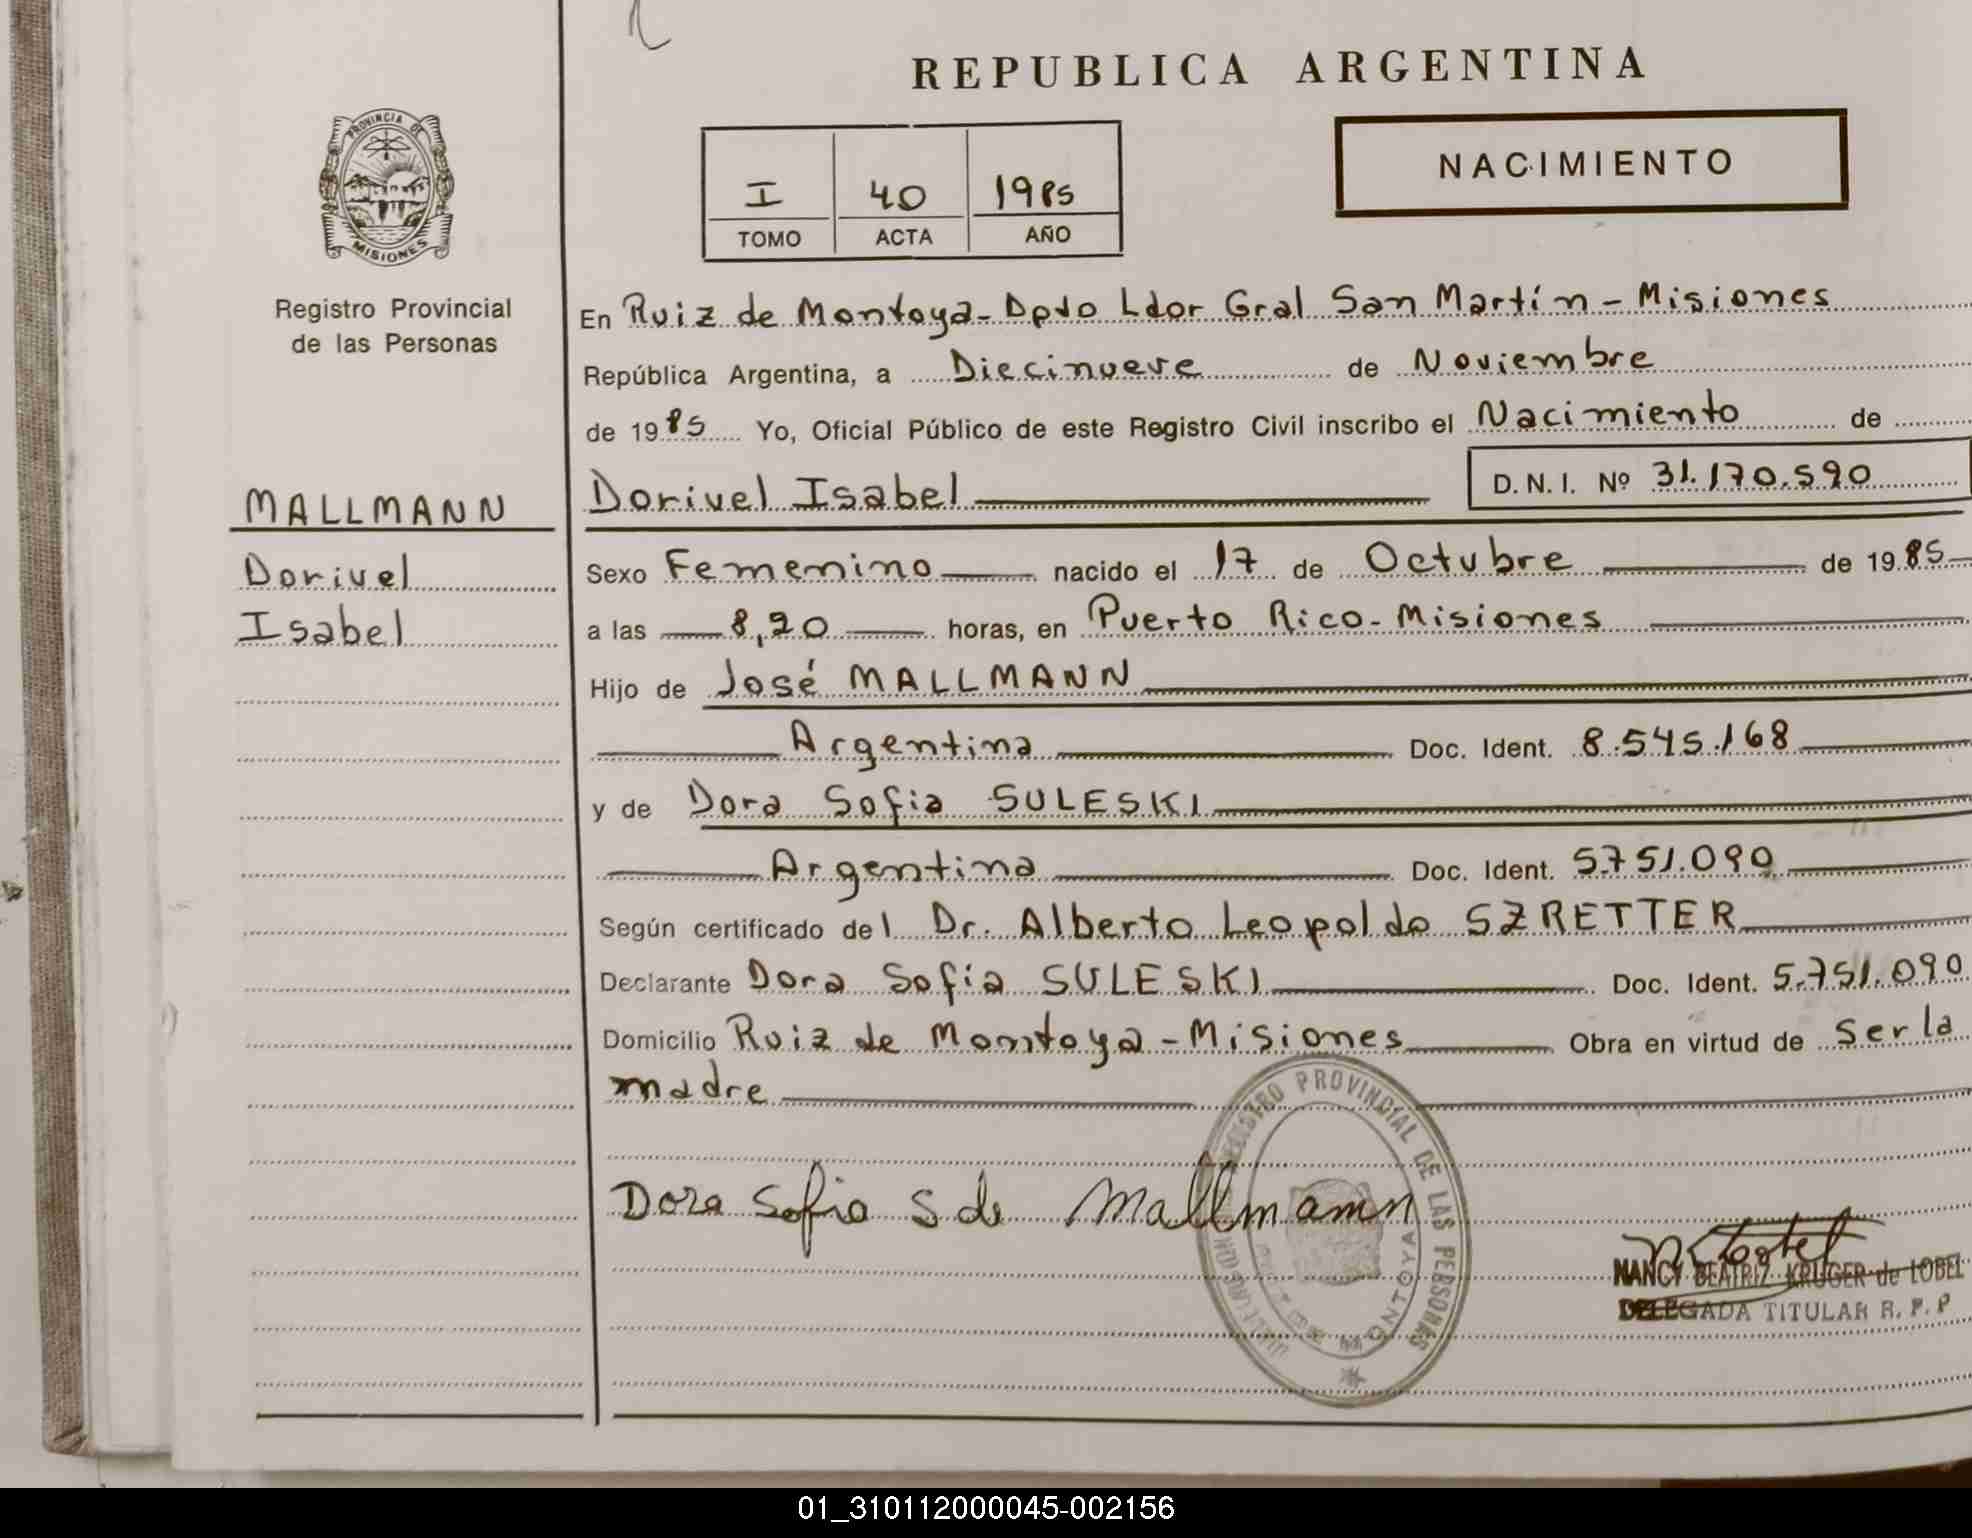 REPUBLICA ARGENTINA
PROVINCIA DE
MISIONES
Registro Provincial
de las Personas
I 40 1985
TOMO ACTA AÑO
NACIMIENTO
En Ruiz de Montoya-Dpto Ldor Gral San Martín-Misiones
República Argentina, a Diecinueve de Noviembre
de 1985 Yo, Oficial Público de este Registro Civil inscribo el Nacimiento de
MALLMANN
Dorivel Isabel D. N. I. Nº 31.170.590
Dorivel
Isabel
Sexo Femenino nacido el 17 de Octubre de 1985
a las 8,20 horas, en Puerto Rico-Misiones
Hijo de José MALLMANN
Argentina Doc. Ident. 8.545.168
y de Dora Sofia SULESKI
Argentina Doc. Ident. 5.751.090
Según certificado del Dr. Alberto Leopoldo SZRETTER
Declarante Dora Sofia SULESKI Doc. Ident. 5.751.090
Domicilio Ruiz de Montoya-Misiones Obra en virtud de ser la
madre
REGISTRO PROVINCIAL DE LAS PERSONAS
MONTOYA
Dora Sofia S de Mallmann
NANCY BEATRIZ KRUGER de LOBEL
DELEGADA TITULAR R. P. P
01_310112000045-002156